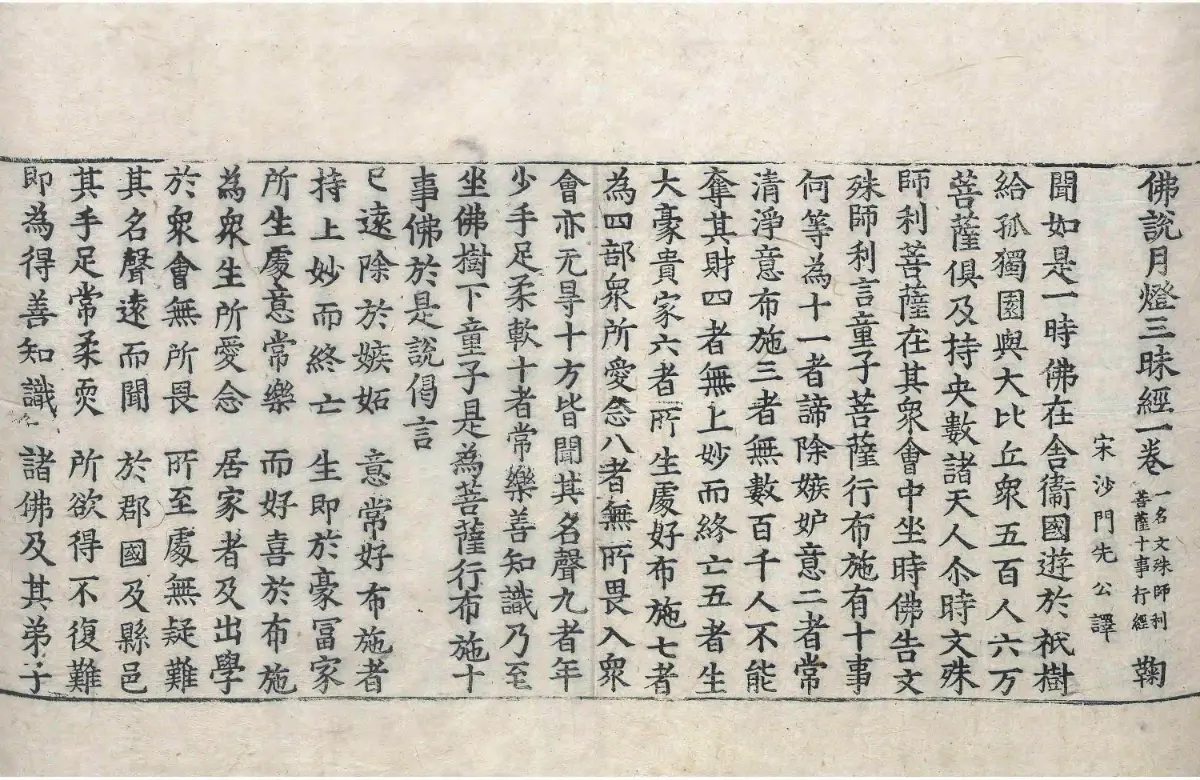 佛說月燈三昧經一卷 一名文殊師利菩薩十事行經 鞠
宋沙門先公譯
聞如是一時佛在舍衛國遊於祇樹
給孤獨園與大比丘衆五百人六万
菩薩俱及持央數諸天人尒時文殊
師利菩薩在其衆會中坐時佛告文
殊師利言童子菩薩行布施有十事
何等為十一者諦除嫉妒意二者常
清淨意布施三者無數百千人不能
奪其財四者無上妙而終亡五者生
大豪貴家六者所生處好布施七者
為四部衆所愛念八者無所畏入衆
會亦无㝵十方皆聞其名聲九者年
少手足柔軟十者常樂善知識乃至
坐佛樹下童子是為菩薩行布施十
事佛於是說偈言
已遠除於嫉妬 意常好布施者
持上妙而終亡 生即於豪冨家
所生處意常樂 而好喜於布施
為衆生所愛念 居家者及出學
於衆會無所畏 所至處無疑難
其名聲遠而聞 於郡國及縣邑
其手足常柔耎 所欲得不復難
即為得善知識 諸佛及其弟子